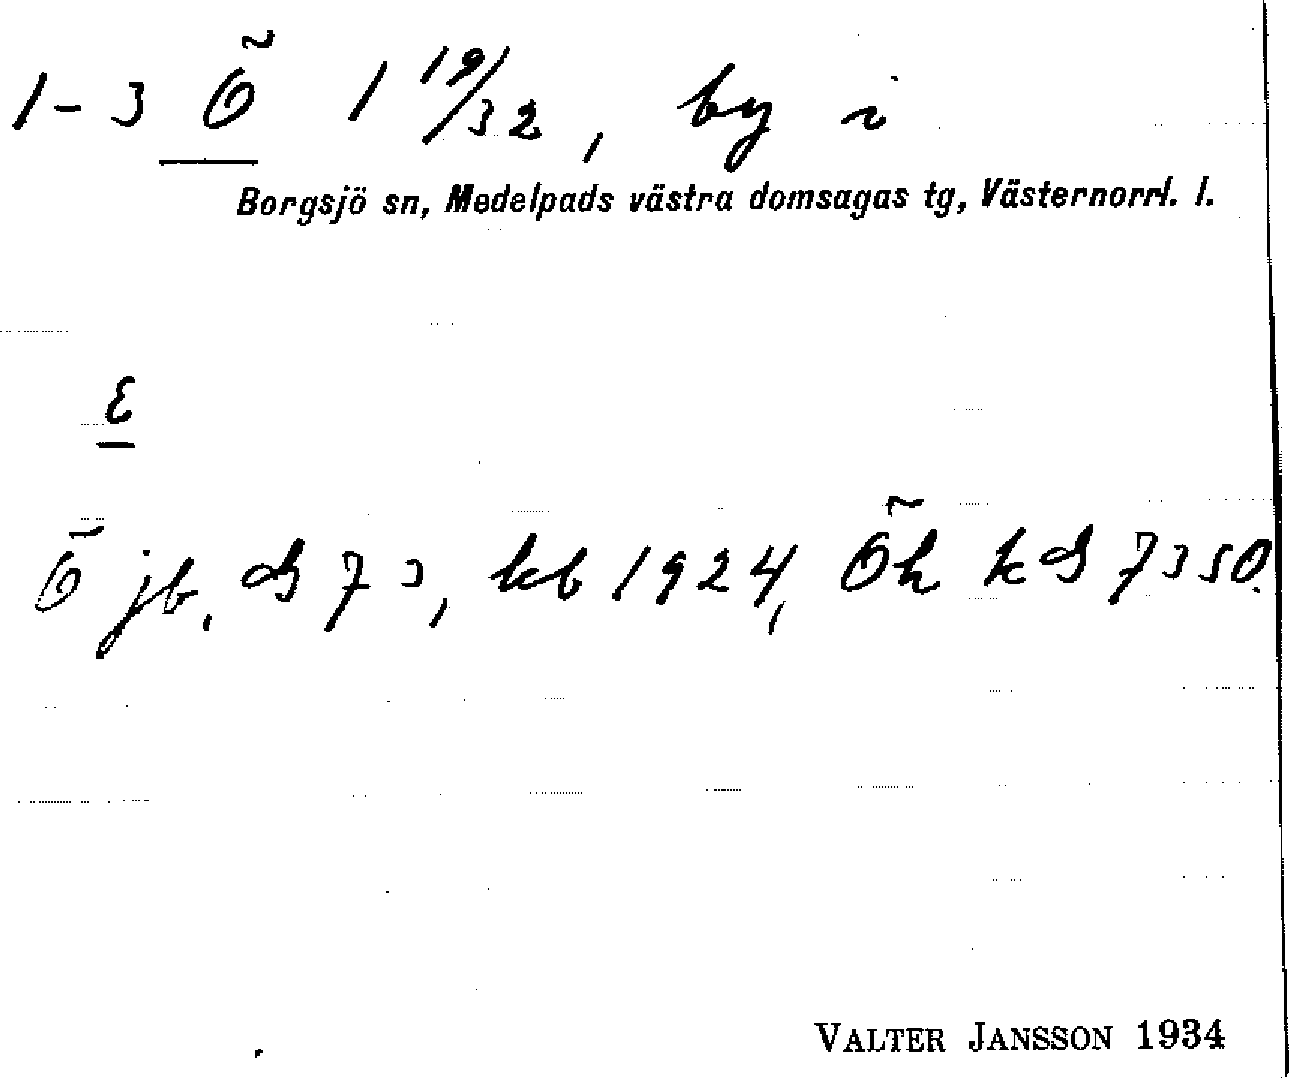 1-3 Ö 1 19/32, by i
Borgsjö sn, Medelpads västra domsagas tg, Västernorrl. l.
E
Ö jb, dS 73, kb 1924, Öh kdS 7350.
VALTER JANSSON 1934